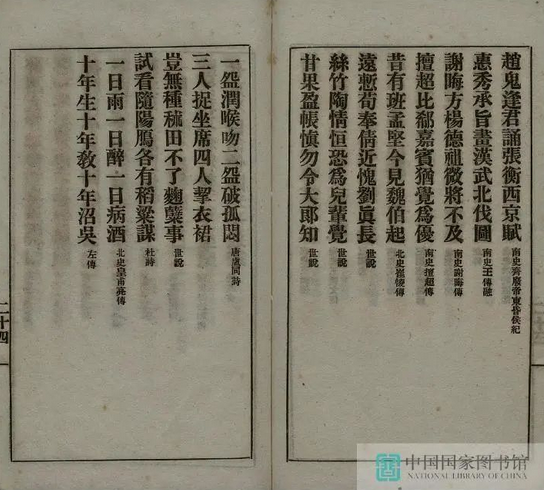 趙鬼達君誦張衡西京賦 南史齊廢帝東昏侯紀
惠秀承旨畫漢武北伐圖 南史王融傳
謝晦方楊德祖微將不及 南史謝晦傳
擅超比郗嘉賓猶覺爲優 南史擅超傳
昔有班孟堅今見魏伯起 北史崔㥄傳
遠慙荀奉倩近愧劉眞長 世說
絲竹陶情恒恐爲兒輩覺 世說
甘果盈帳愼勿令大郞知 世說
一盌潤喉吻二盌破孤悶 唐盧仝詩
三人捉坐席四人挈衣裙
豈無種秫田不了麴糱事 世說
試看隨陽鴈各有稻粱謀 杜詩
一日雨一日醉一日病酒 北史皇甫亮傳
十年生十年敎十年沼吳 左傳
二十四
中国国家图书馆
NATIONAL LIBRARY OF CHINA